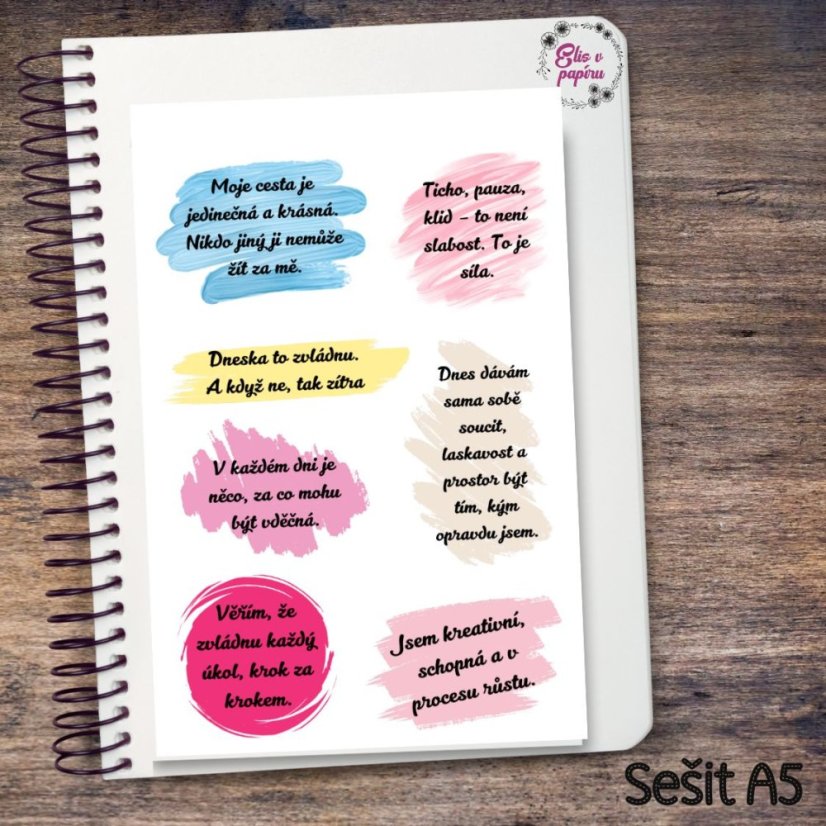 Elis v
papíru
Moje cesta je
jedinečná a krásná.
Nikdo jiný ji nemůže
žít za mě.
Ticho, pauza,
klid – to není
slabost. To je
síla.
Dneska to zvládnu.
A když ne, tak zítra
Dnes dávám
sama sobě
soucit,
laskavost a
prostor být
tím, kým
opravdu jsem.
V každém dni je
něco, za co mohu
být vděčná.
Věřím, že
zvládnu každý
úkol, krok za
krokem.
Jsem kreativní,
schopná a v
procesu růstu.
Sešit A5